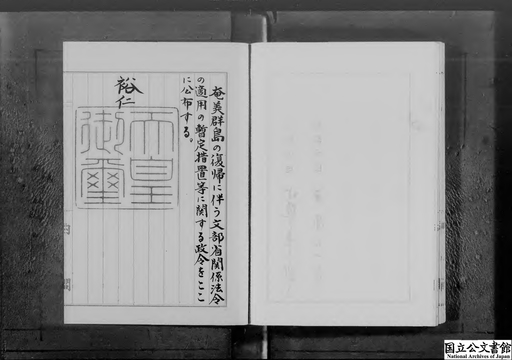 奄美群島の復帰に伴う文部省関係法令
の適用の暫定措置等に関する政令をここ
に公布する。
裕仁
天皇
御璽
国立公文書館
National Archives of Japan